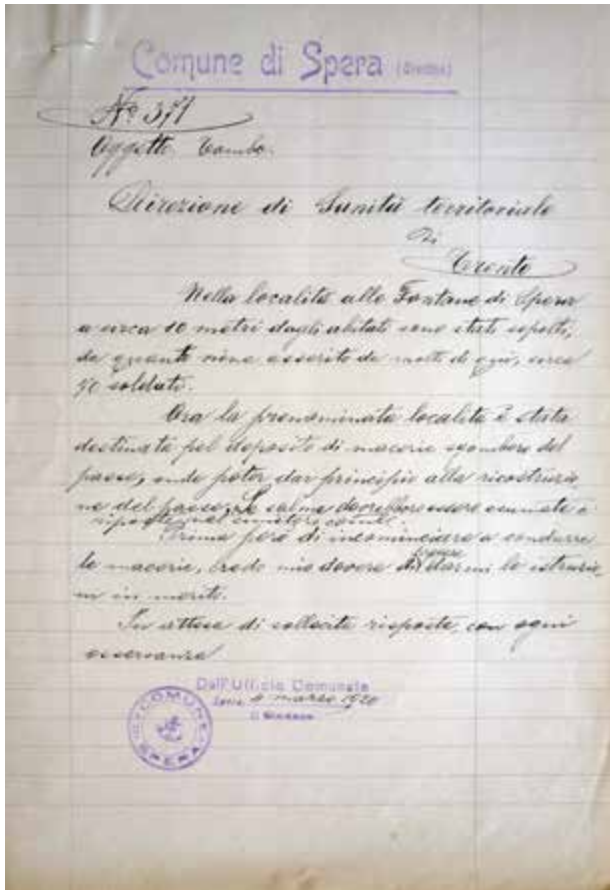 Comune di Spera
No 371
Oggetto. Tombe.
Direzione di Sanità territoriale
di
Trento
Nella località alle Fontane di Spera
a circa 10 metri dagli abitati sono stati sepolti,
da quanto viene asserito da molti di qui, circa
70 soldati.
Ora la prenominata località è stata
destinata pel deposito di macerie sgombero del
paese, onde poter dar principio alla ricostruzio
ne del paese. Le salme dovrebbero essere esumate e
riposte nel cimitero
Prima però di incominciare a condurre
le macerie, credo mio dovere di darmi le istruzio
ni in merito.
In attesa di sollecita risposta, con ogni
osservanza
Dall'Ufficio Comunale
Spera 4 marzo 1920
Il Sindaco
COMUNE
SPERA